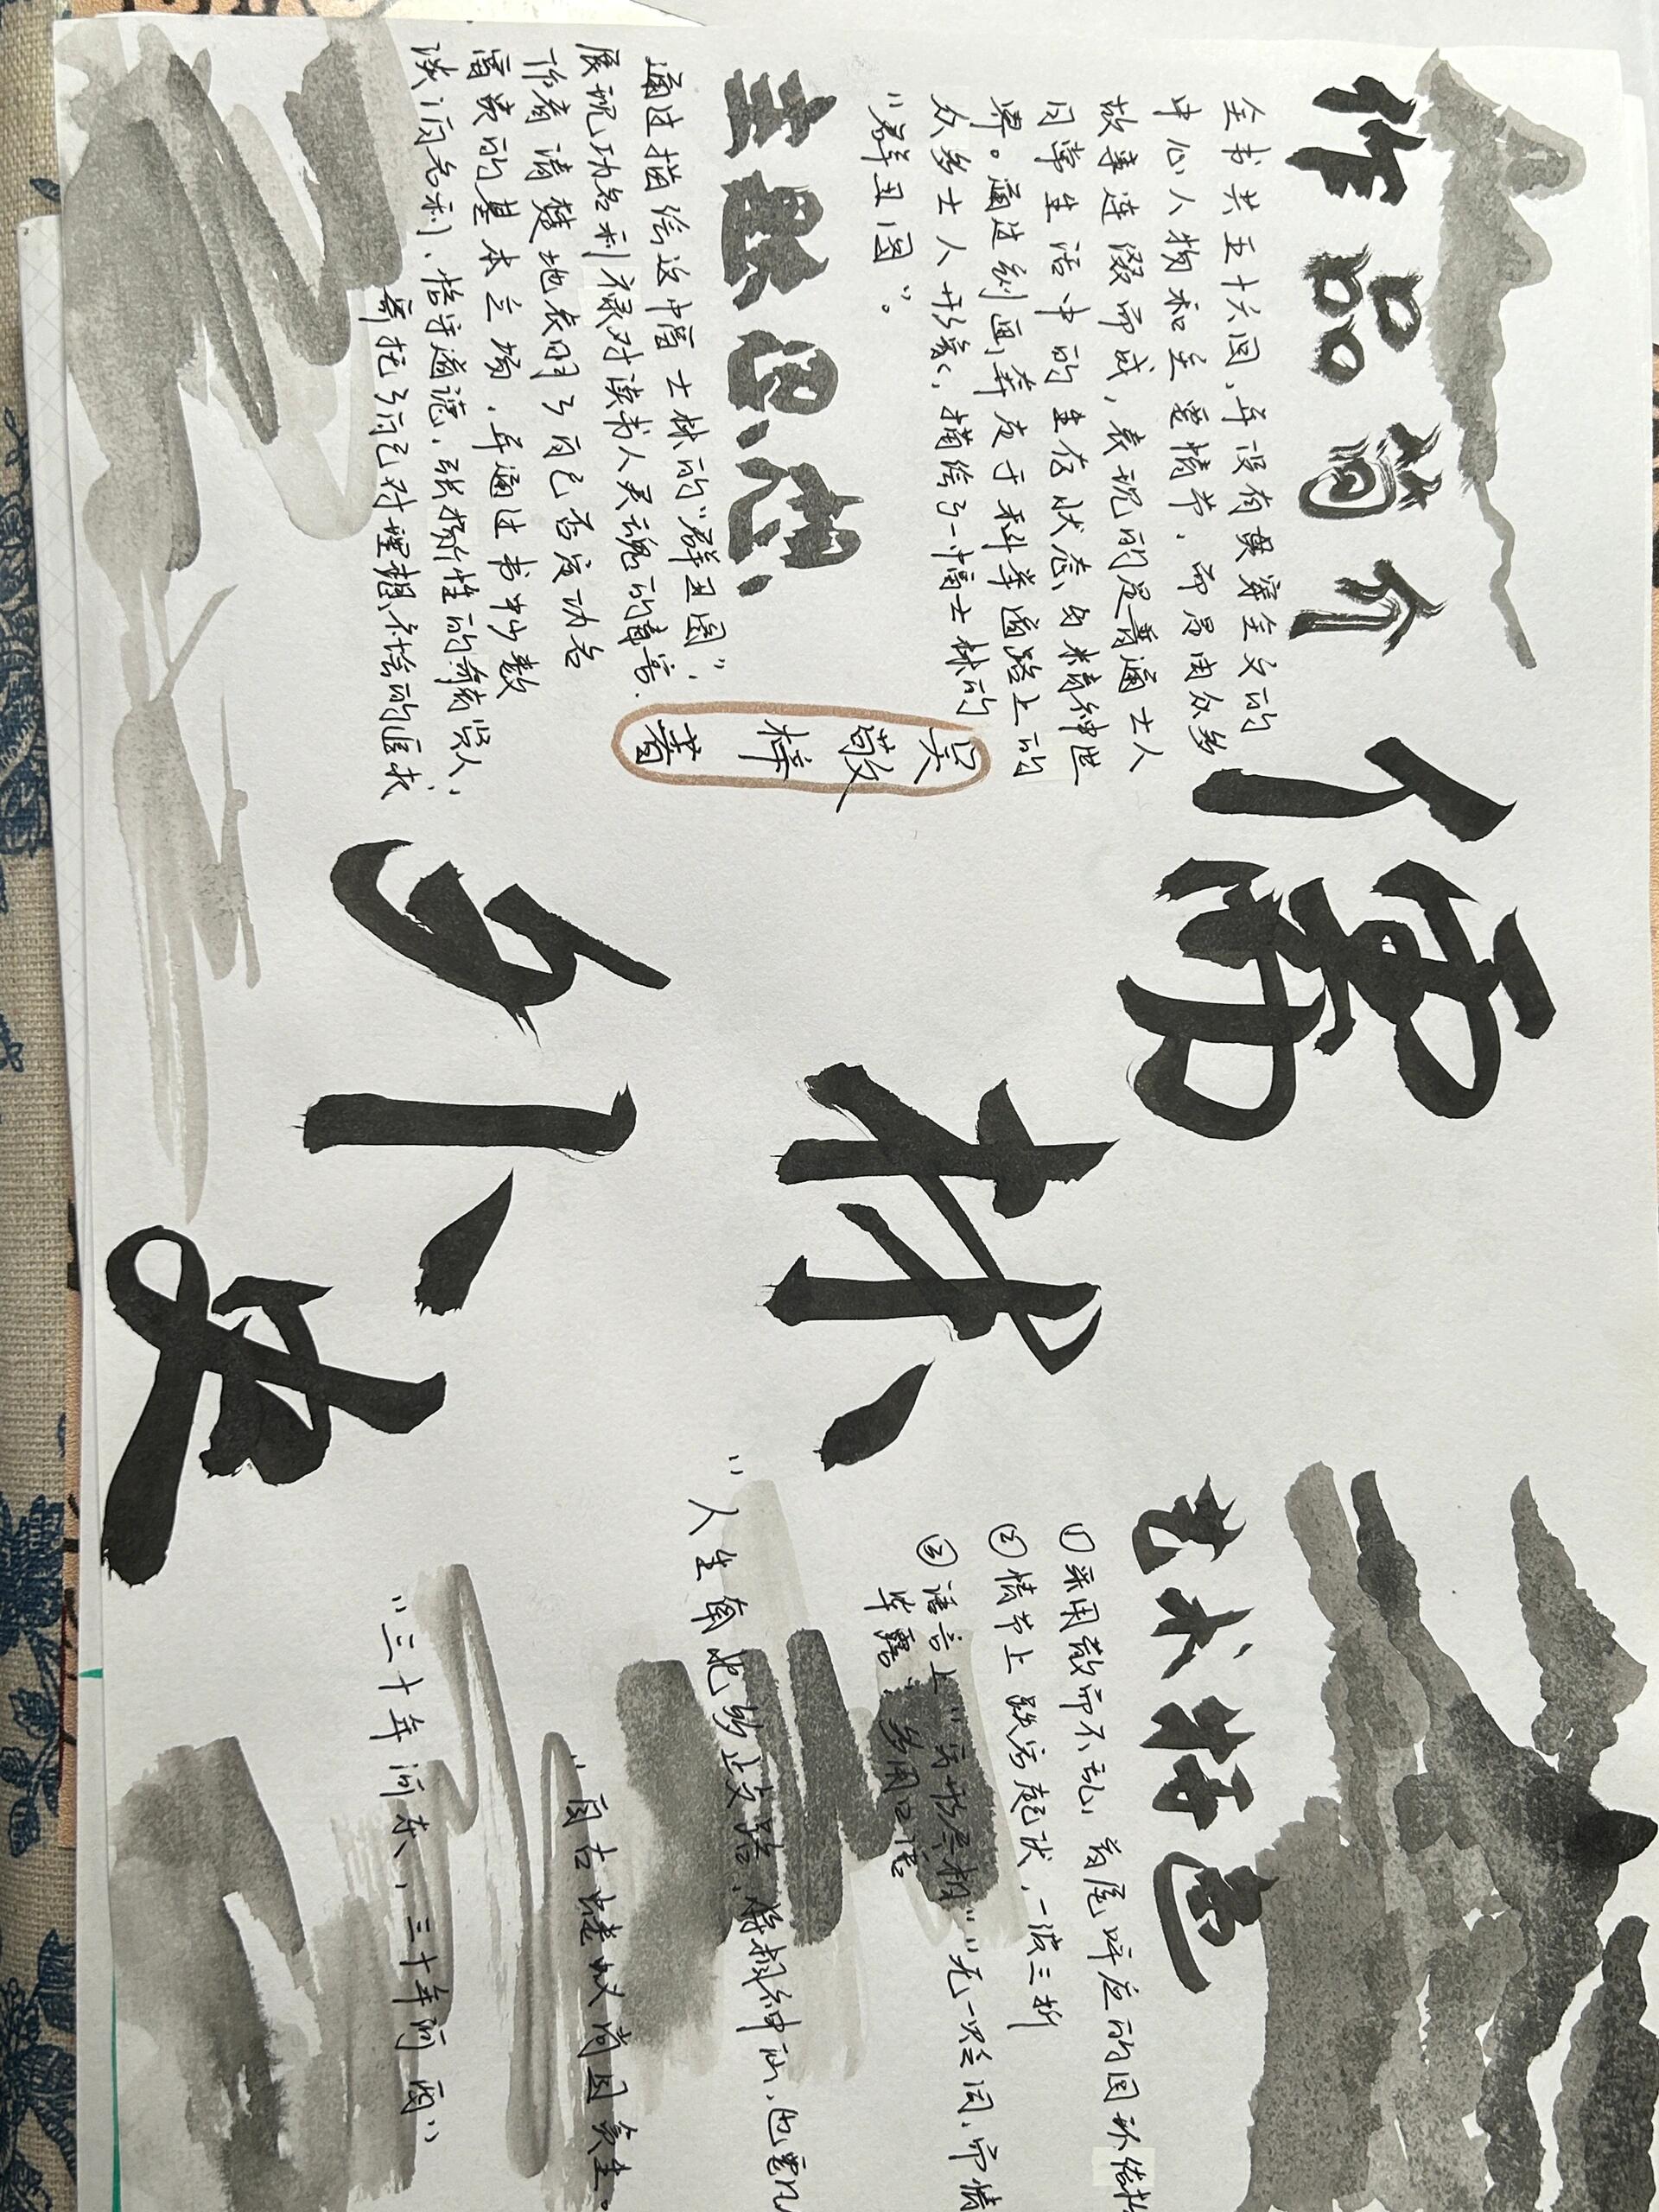 儒林外史
吴敬梓著
作品简介
全书共五十六回,并没有贯穿全文的
中心人物和主要情节,而是由众多
故事连缀而成,表现的是普通士人
日常生活中的生存状态与精神世
界。通过刻画奔走于科举道路上的
众多士人形象,描绘了一幅士林的
“群丑图”。
主题思想
通过描绘这幅士林的“群丑图”,
展现功名利禄对读书人灵魂的毒害.
作者清楚地表明了自己否定功名
富贵的基本立场,并通过书中少数
淡泊名利、恪守道德、张扬个性的奇人贤人,
寄托了自己对理想人格的追求
艺术特色
①采用散而不乱,首尾呼应的圆环结构
②情节上跌宕起伏,一波三折
③语言上“穷形尽相”“无一贬词,而情
毕露”,多用口语
“人生南北多歧路,将相神仙,也要凡
“自古蝼蚁尚且贪生。
“三十年河东,三十年河西”